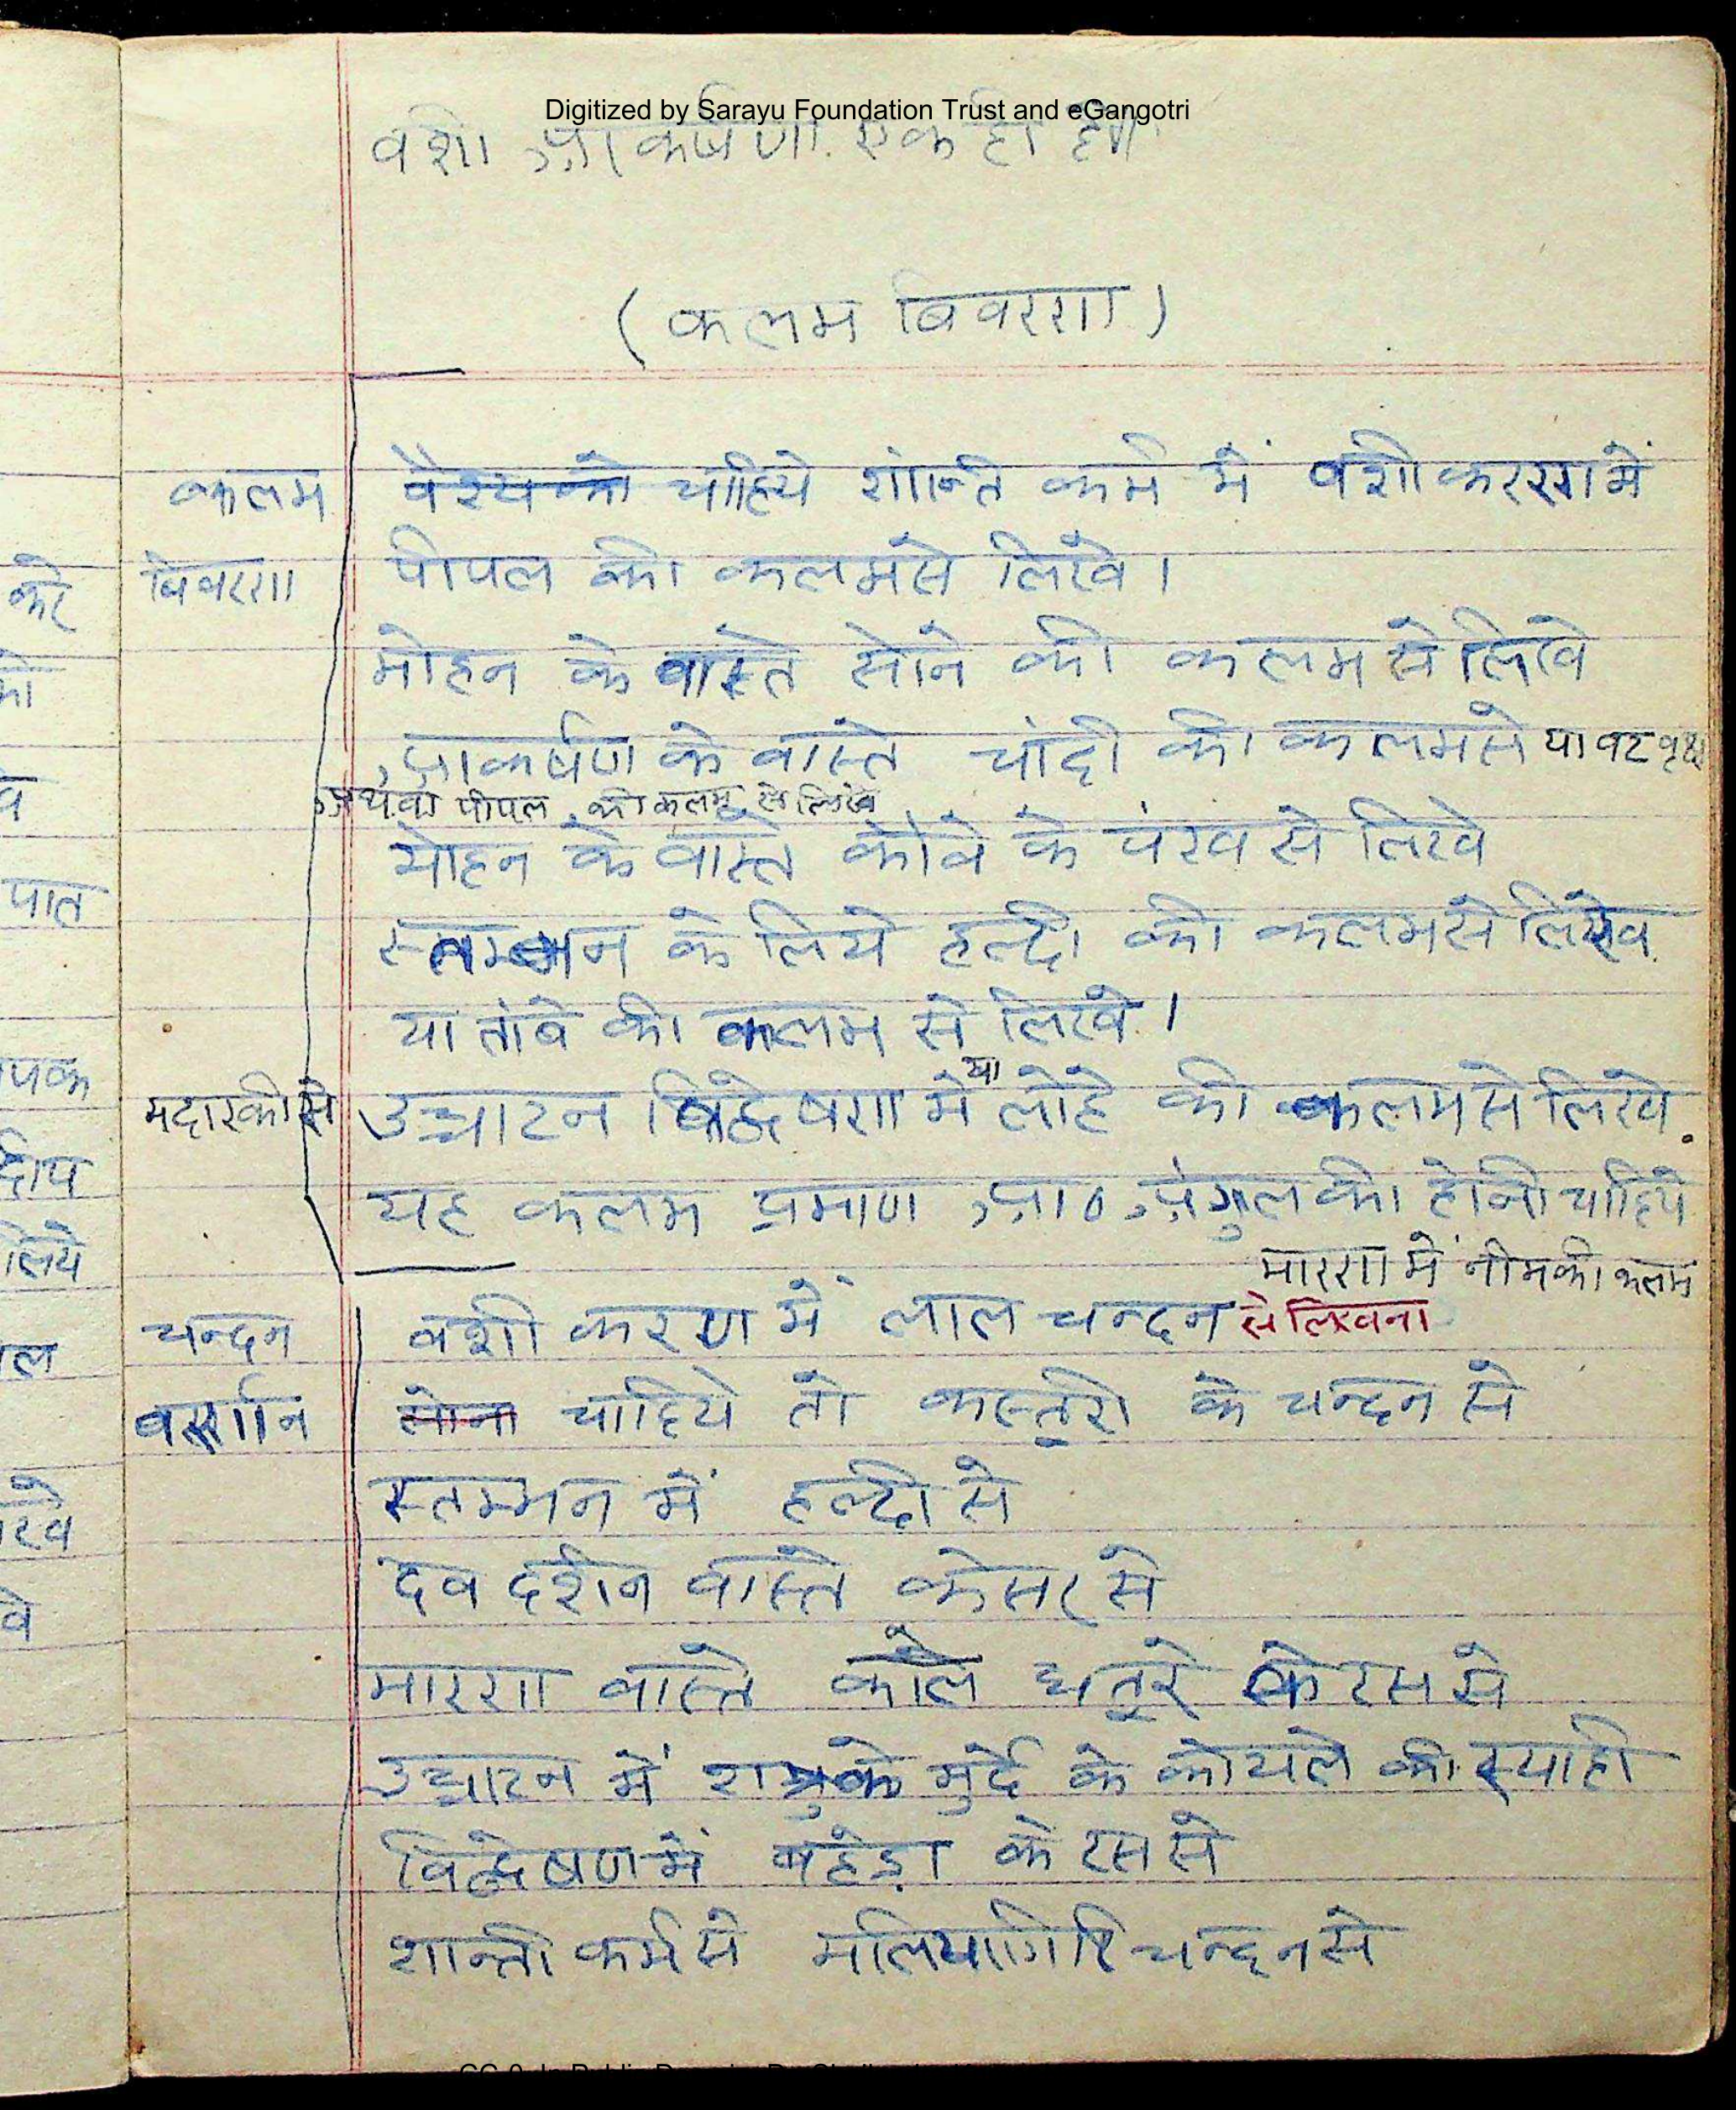 Digitized by Sarayu Foundation Trust and eGangotri
वशी आकर्षण एक ही है
(कलम बिवरण)
कलम वैश्य को चाहिये शान्ति कर्म में वशीकरण में
बिवरण पीपल की कलम से लिखे।
मोहन के वास्ते सोने की कलम से लिखे
आकर्षण के वास्ते चांदी की कलम से या वट वृक्ष
अथवा पीपल की कलम से लिखे
मोहन के वास्ते कौवे के पंख से लिखे
स्तम्भन के लिये हल्दी की कलम से लिखे
या तांबे की कलम से लिखे।
मदारकी से उच्चाटन बिद्वेषण में या लोहे की कलम से लिखे.
यह कलम प्रमाण आ० अंगुल की होनी चाहिये
मारण में नीम की कलम
चन्दन वशीकरण में लाल चन्दन से लिखना
वर्णन सोना चाहिये तो कस्तूरी के चन्दन से
स्तम्भन में हल्दी से
देव दर्शन वास्ते केसर से
मारण वास्ते काले धतूरे के रस से
उच्चाटन में शत्रु के मुर्दे के कोयले की स्याही
विद्वेषण में बहेड़ा के रस से
शान्ती कर्म से मलियागिरि चन्दन से
करे
की
पात
पक
दीप
लिये
वे